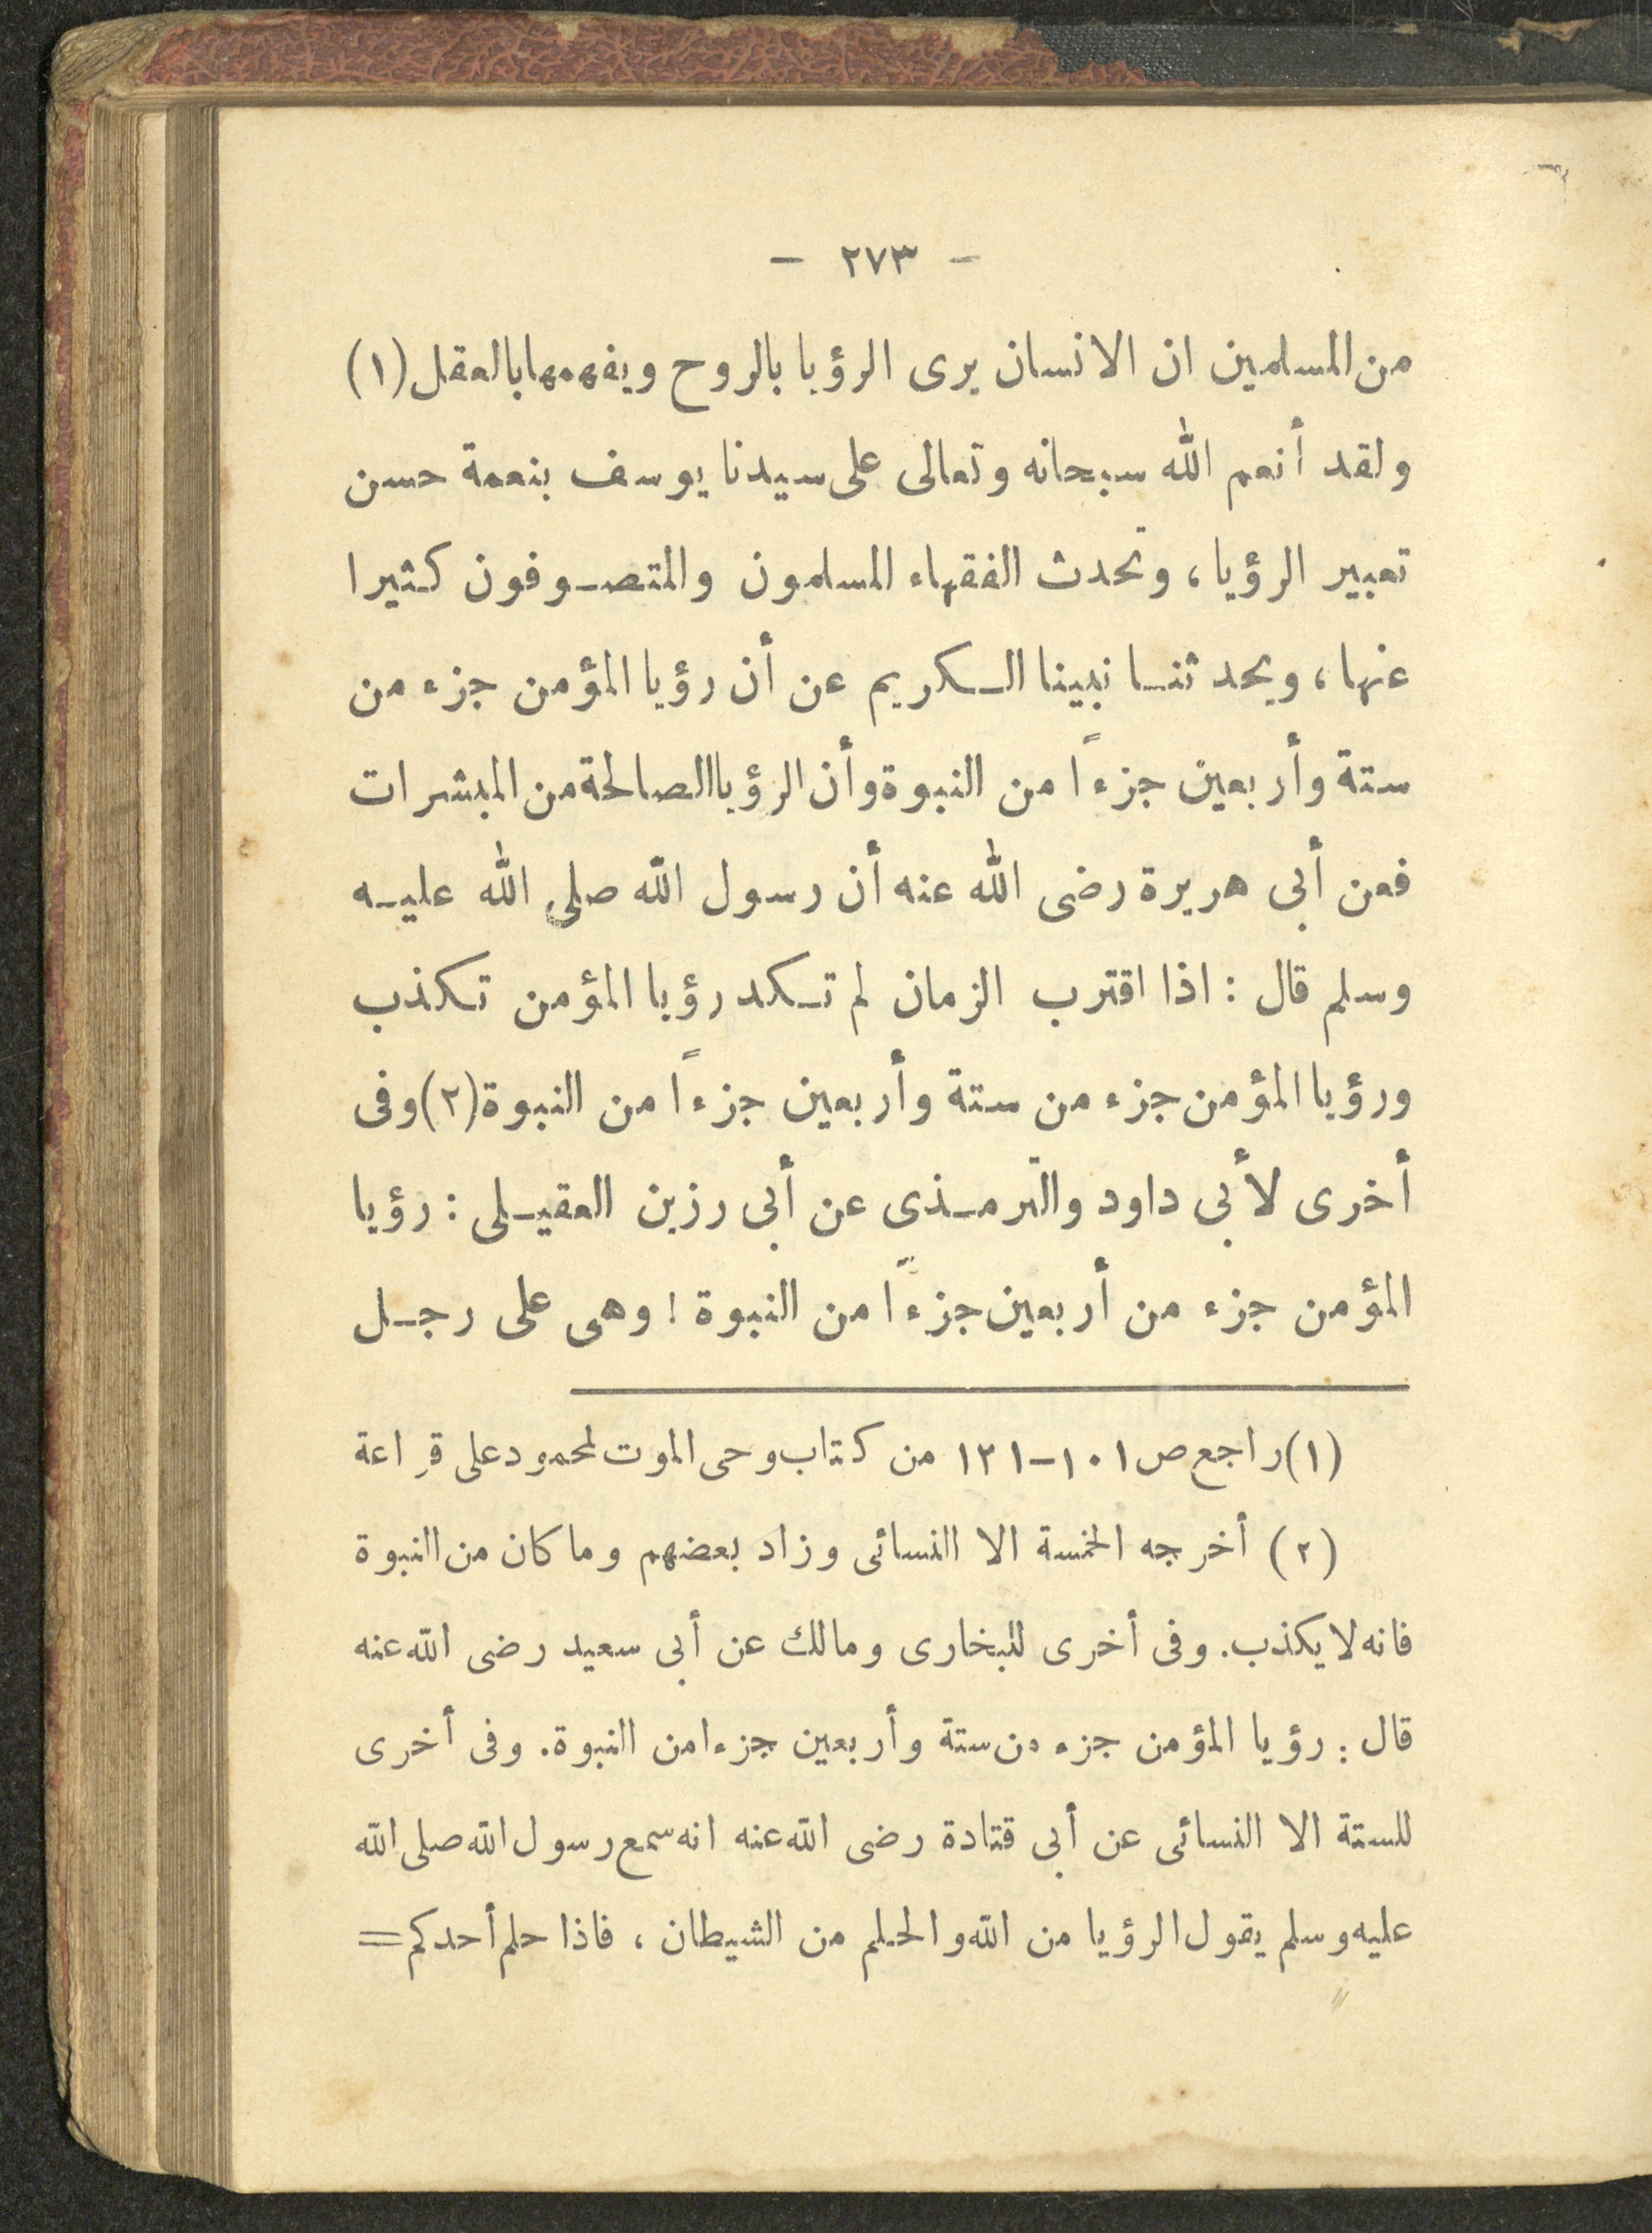 - ٢٧٣ -
من المسلمين ان الانسان يرى الرؤيا بالروح ويفهمها بالعقل (١)
ولقد أنعم الله سبحانه وتعالى على سيدنا يوسف بنعمة حسن
تعبير الرؤيا، وتحدث الفقهاء المسلمون والمتصوفون كثيرا
عنها، ويحدثنا نبينا الكريم عن أن رؤيا المؤمن جزء من
ستة وأربعين جزءاً من النبوة وأن الرؤيا الصالحة من المبشرات
فعن أبى هريرة رضى الله عنه أن رسول الله صلى الله عليه
وسلم قال : اذا اقترب الزمان لم تكد رؤيا المؤمن تكذب
ورؤيا المؤمن جزء من ستة وأربعين جزءاً من النبوة (٢) وفى
أخرى لأبى داود والترمذى عن أبى رزين العقيلى : رؤيا
المؤمن جزء من أربعين جزءاً من النبوة ! وهى على رجل
(١) راجع ص ١٠١-١٢١ من كتاب وحى الموت لمحمود على قراعة
(٢) أخرجه الخمسة الا النسائى وزاد بعضهم وما كان من النبوة
فانه لا يكذب. وفى أخرى للبخارى ومالك عن أبى سعيد رضى الله عنه
قال : رؤيا المؤمن جزء من ستة وأربعين جزءا من النبوة. وفى أخرى
للستة الا النسائى عن أبى قتادة رضى الله عنه انه سمع رسول الله صلى الله
عليه وسلم يقول الرؤيا من الله والحلم من الشيطان ، فاذا حلم أحدكم =